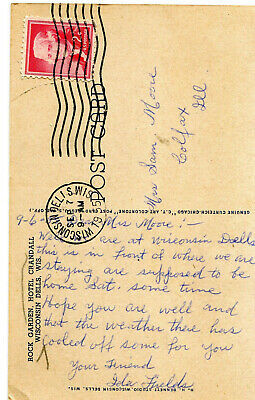 POST CARD
WISCONSIN DELLS, WIS.
SEP 7
9 AM
2¢
Mrs Sam Moore
Colfax
Ill
GENUINE CURTEICH-CHICAGO "C. T. ART-COLORTONE" POST CARD (REG. U. S. PAT. OFF.)
ROCK GARDEN, HOTEL CRANDALL
WISCONSIN DELLS, WIS.
H. H. BENNETT STUDIO, WISCONSIN DELLS, WIS.
9-6- Dear Mrs Moore:-
Well we are at Wisconsin Dells
this is in front of where we are
staying are supposed to be
home Sat. some time
Hope you are well and
that the weather there has
cooled off some for you
Your Friend
Ida Fields